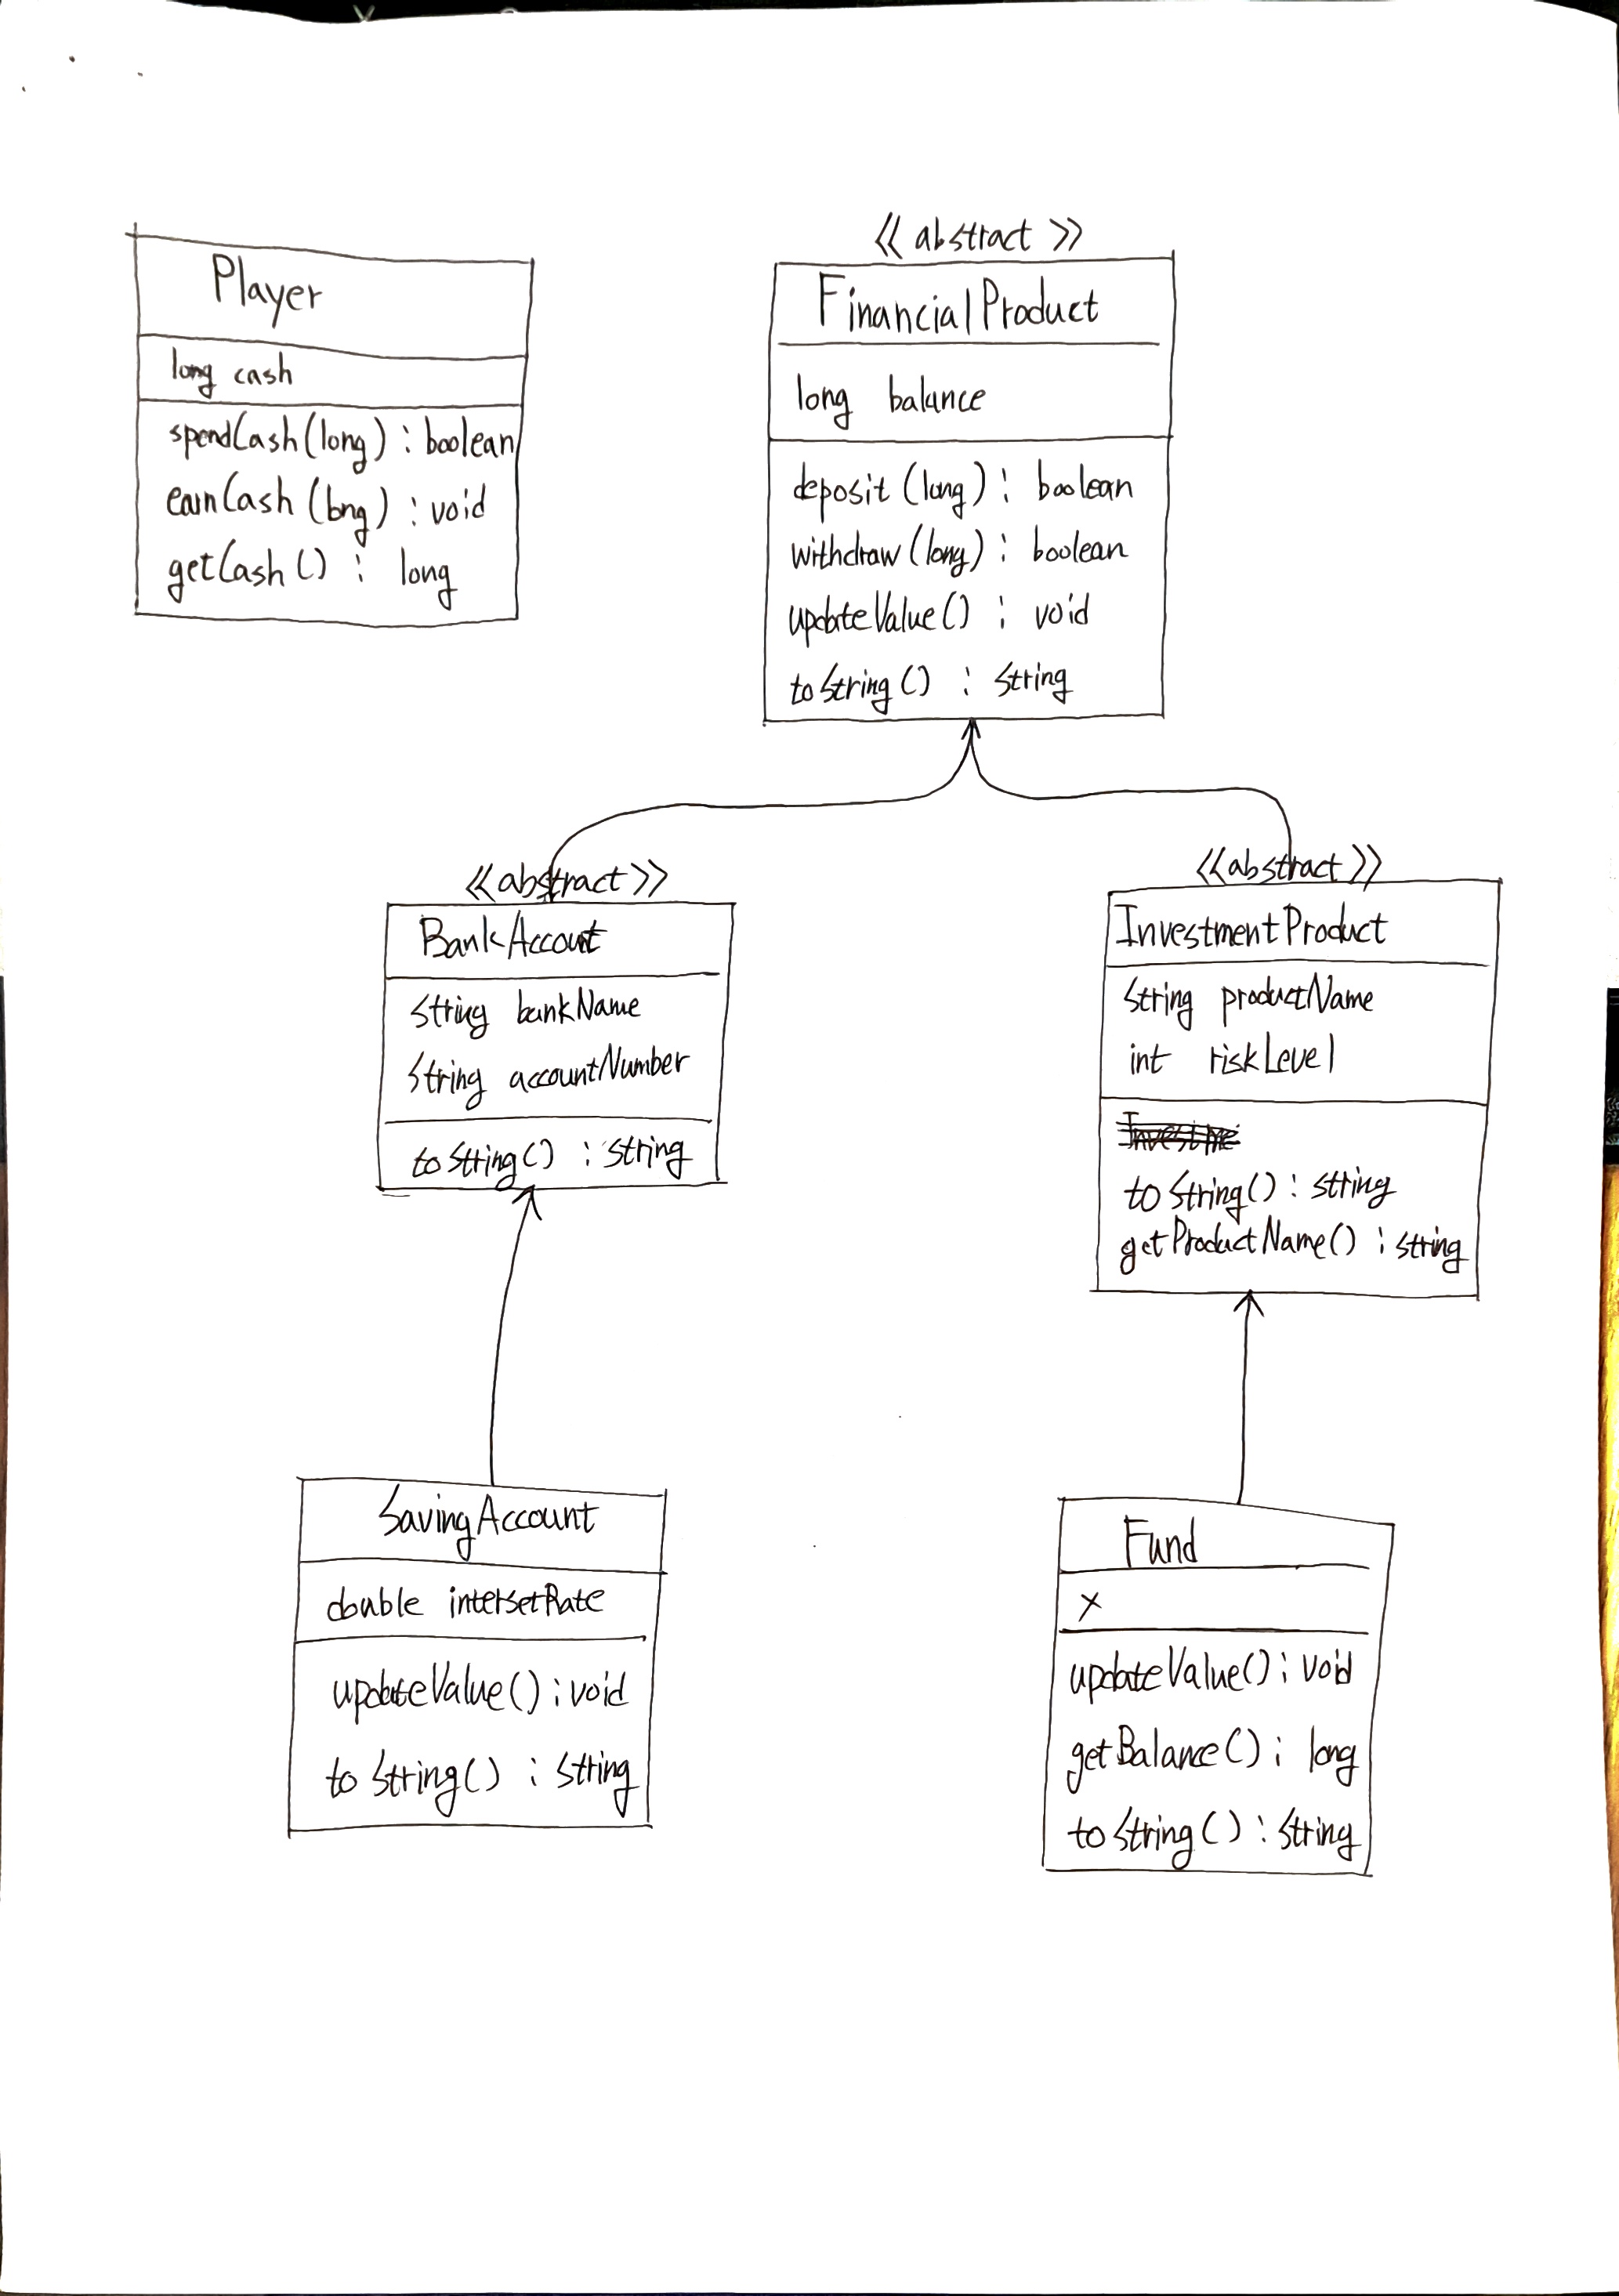 Player
long cash
spendCash(long) : boolean
earnCash(long) : void
getCash() : long
<< abstract >>
FinancialProduct
long balance
deposit(long) : boolean
withdraw(long) : boolean
updateValue() : void
toString() : String
<<abstract>>
BankAccount
String bankName
String accountNumber
toString() : string
<<abstract>>
InvestmentProduct
String productName
int riskLevel
Investme
toString() : string
getProductName() : string
SavingAccount
double intersetRate
updateValue() : void
toString() : string
Fund
X
updateValue() : void
getBalance() : long
toString() : String